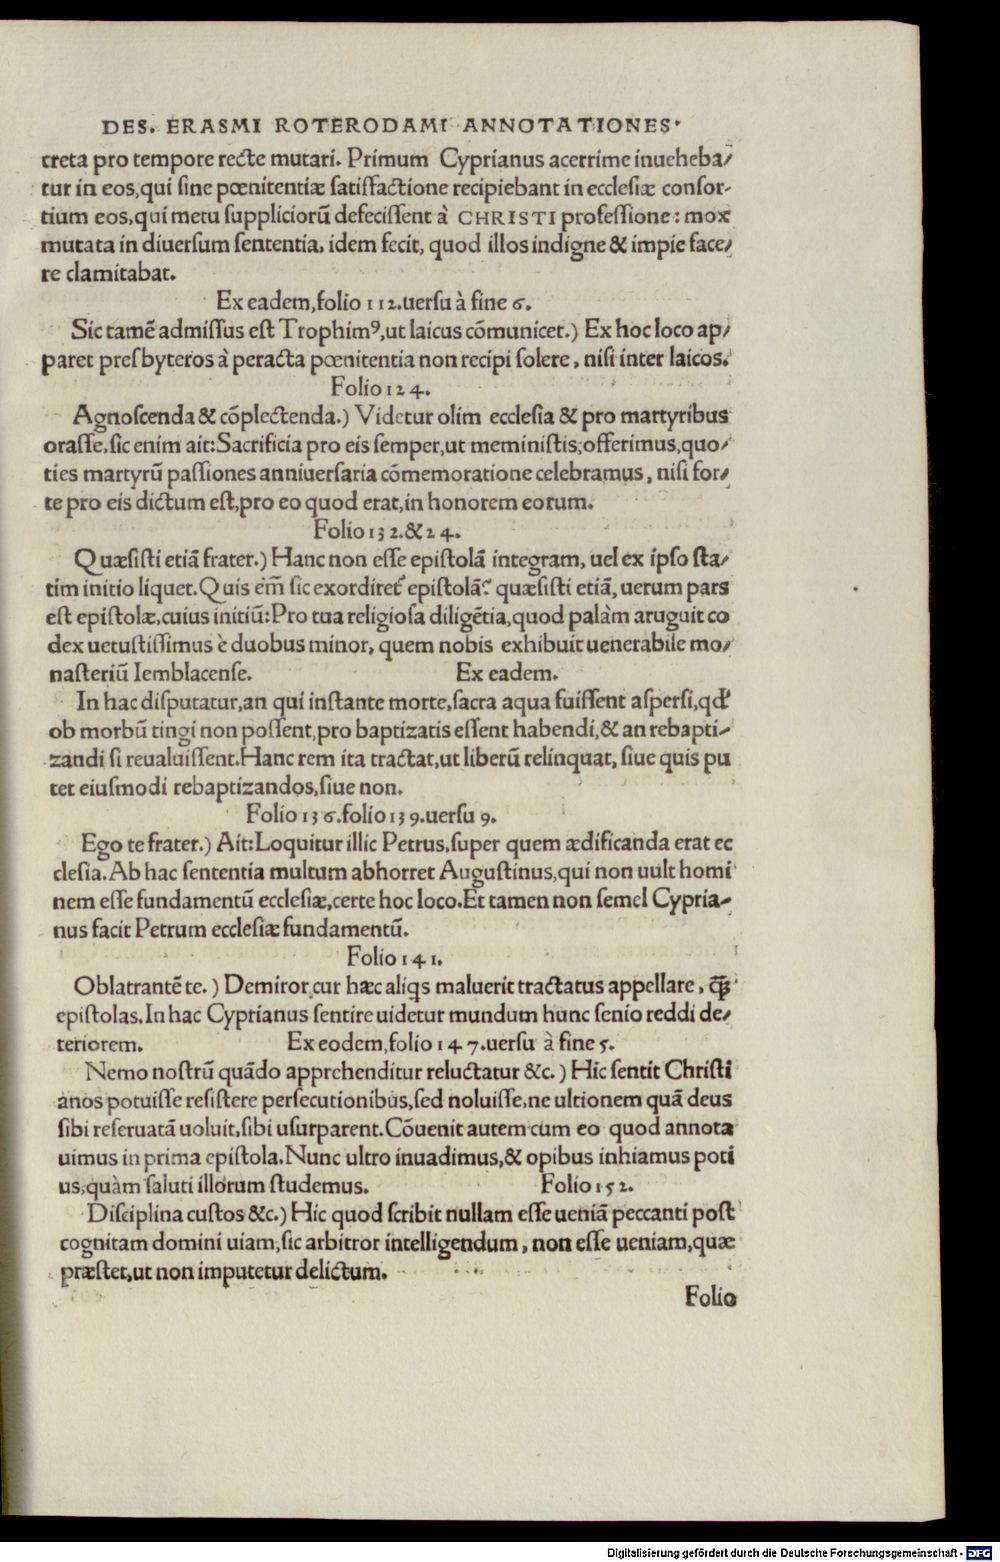 DES. ERASMI ROTERODAMI ANNOTATIONES.
creta pro tempore recte mutari. Primum Cyprianus acerrime inueheba/
tur in eos,qui sine pœnitentiæ satisfactione recipiebant in ecclesiæ consor-
tium eos,qui metu suppliciorū defecissent à CHRISTI professione: mox
mutata in diuersum sententia, idem fecit, quod illos indigne & impie face/
re clamitabat.
Ex eadem,folio 112.uersu à fine 6.
Sic tamē admissus est Trophimꝰ,ut laicus cōmunicet.) Ex hoc loco ap/
paret presbyteros à peracta pœnitentia non recipi solere, nisi inter laicos.
Folio 124.
Agnoscenda & cōplectenda.) Videtur olim ecclesia & pro martyribus
orasse,sic enim ait:Sacrificia pro eis semper,ut meministis,offerimus,quo/
ties martyrū passiones anniuersaria cōmemoratione celebramus, nisi for/
te pro eis dictum est,pro eo quod erat,in honorem eorum.
Folio 132.&24.
Quæsisti etiā frater.) Hanc non esse epistolā integram, uel ex ipso sta/
tim initio liquet.Quis em̄ sic exordiret᷑ epistolā? quæsisti etiā, uerum pars
est epistolæ,cuius initiū:Pro tua religiosa diligētia,quod palàm aruguit co
dex uetustissimus è duobus minor, quem nobis exhibuit uenerabile mo/
nasteriū Iemblacense. Ex eadem.
In hac disputatur,an qui instante morte,sacra aqua fuissent aspersi,qđ
ob morbū tingi non possent,pro baptizatis essent habendi,& an rebapti/
zandi si reualuissent.Hanc rem ita tractat,ut liberū relinquat, siue quis pu
tet eiusmodi rebaptizandos,siue non.
Folio 136.folio 139.uersu 9.
Ego te frater.) Ait:Loquitur illic Petrus,super quem ædificanda erat ec
clesia.Ab hac sententia multum abhorret Augustinus,qui non uult homi
nem esse fundamentū ecclesiæ,certe hoc loco.Et tamen non semel Cypria-
nus facit Petrum ecclesiæ fundamentū.
Folio 141.
Oblatrantē te.) Demiror cur hæc aliqs maluerit tractatus appellare, ꝙ̃
epistolas.In hac Cyprianus sentire uidetur mundum hunc senio reddi de/
teriorem. Ex eodem,folio 147.uersu à fine 5.
Nemo nostrū quādo apprehenditur reluctatur &c.) Hic sentit Christi
anos potuisse resistere persecutionibus,sed noluisse,ne ultionem quā deus
sibi reseruatā uoluit,sibi usurparent.Cōuenit autem cum eo quod annota
uimus in prima epistola.Nunc ultro inuadimus,& opibus inhiamus poti
us,quàm saluti illorum studemus. Folio 152.
Disciplina custos &c.) Hic quod scribit nullam esse ueniā peccanti post
cognitam domini uiam,sic arbitror intelligendum, non esse ueniam,quæ
præstet,ut non imputetur delictum.
Folio
Digitalisierung gefördert durch die Deutsche Forschungsgemeinschaft - DFG